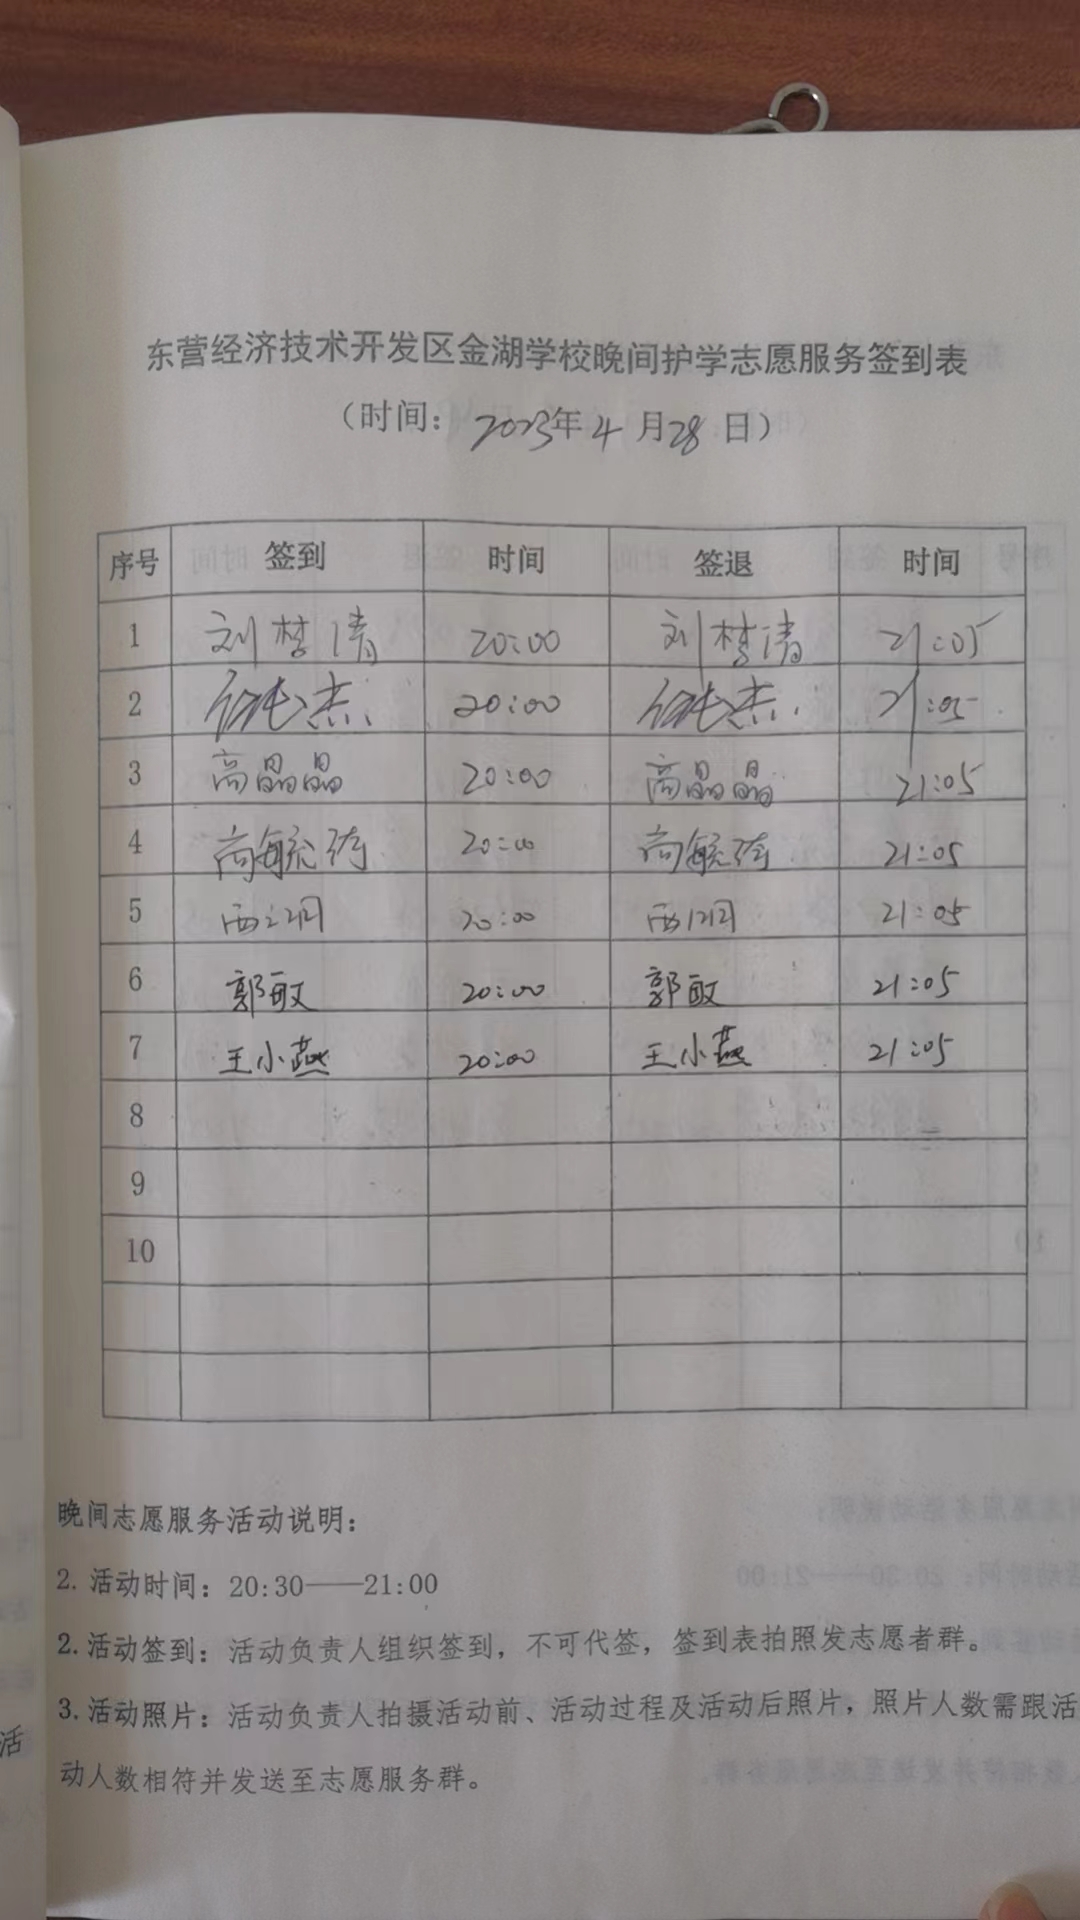 东营经济技术开发区金湖学校晚间护学志愿服务签到表
（时间：2023年4月28日）
序号 签到 时间 签退 时间
1 刘梦清 20:00 刘梦清 21:05
2 20:00 21:05
3 高晶晶 20:00 高晶晶 21:05
4 20:00 21:05
5 20:00 21:05
6 郭敏 20:00 郭敏 21:05
7 王小燕 20:00 王小燕 21:05
8
9
10
晚间志愿服务活动说明：
2. 活动时间：20:30——21:00
2. 活动签到：活动负责人组织签到，不可代签，签到表拍照发志愿者群。
3. 活动照片：活动负责人拍摄活动前、活动过程及活动后照片，照片人数需跟活
动人数相符并发送至志愿服务群。
活